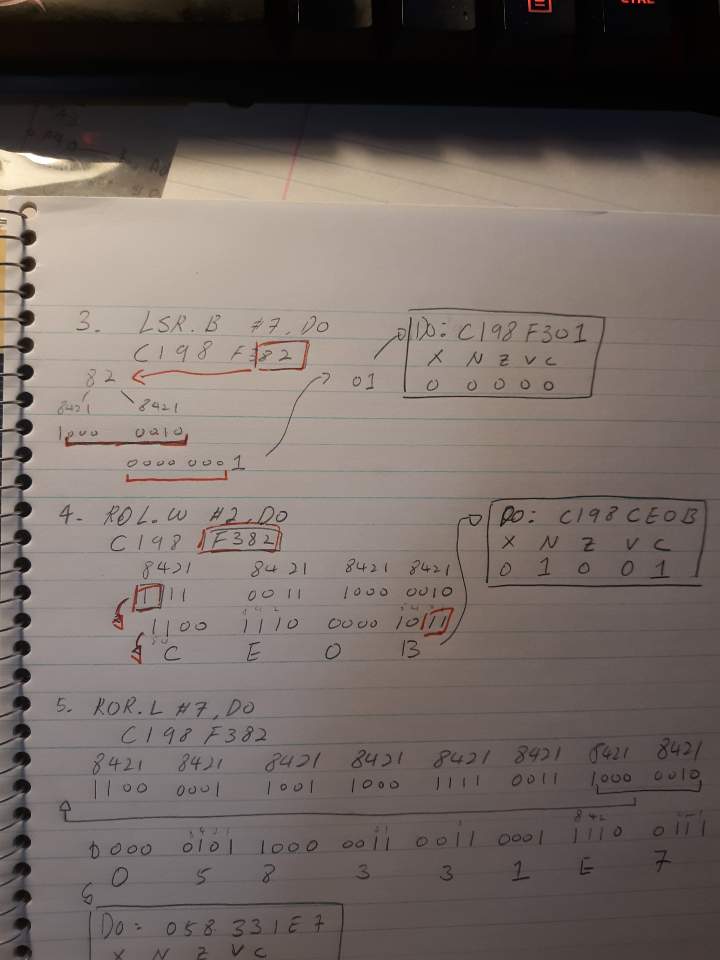 CTRL
3. LSR.B #7, D0
C198 F382
82
8421 8421
1000 0010
0000 0001
01
D0: C198 F301
X N Z V C
0 0 0 0 0
4. ROL.W #2, D0
C198 F382
8421 8421 8421 8421
1111 0011 1000 0010
1100 1110 0000 1011
C E 0 B
D0: C198 CE0B
X N Z V C
0 1 0 0 1
5. ROR.L #7, D0
C198 F382
8421 8421 8421 8421 8421 8421 8421 8421
1100 0001 1001 1000 1111 0011 1000 0010
0000 0101 1000 0011 0011 0001 1110 0111
0 5 8 3 3 1 E 7
D0: 058 331E7
X N Z V C